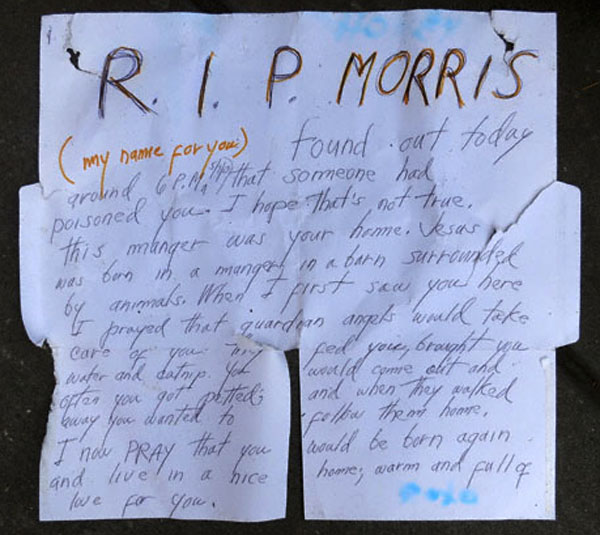 R. I. P. MORRIS
(my name for you:) Found out today
around 6 P.M., that someone had
poisoned you. I hope that's not true.
This manger was your home. Jesus
was born in a manger, in a barn surrounded
by animals. When I first saw you here
I prayed that guardian angels would take
care of you. They fed you, brought you
water and catnip. You would come out and
often you got petted; and when they walked
away you wanted to follow them home.
I now PRAY that you would be born again
and live in a nice home; warm and full of
love for you.